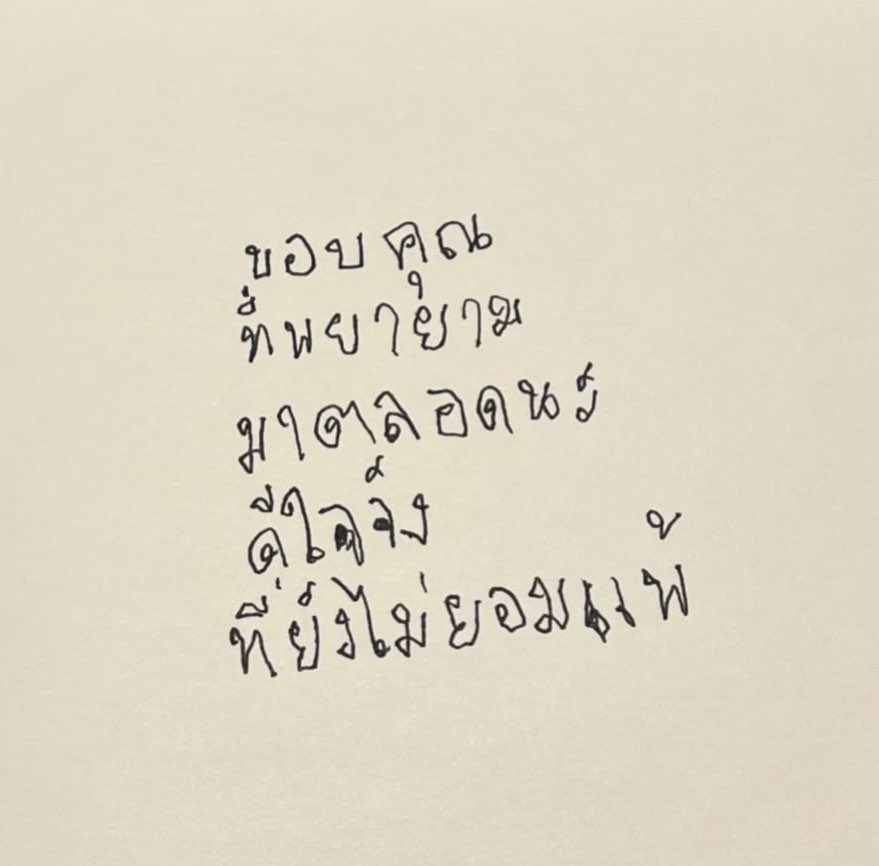 ขอบคุณ
ที่พยายาม
มาตลอดนะ
ดีใจจัง
ที่ยังไม่ยอมแพ้